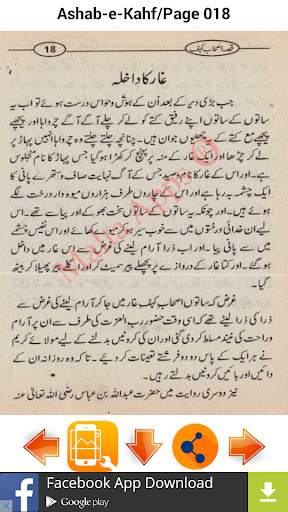 Ashab-e-Kahf/Page 018
18
قصہ اصحاب کہف
غار کا داخلہ
جب بڑی دیر کے بعد اُن کے ہوش و حواس درست ہوئے تو اب یہ
ساتوں کے ساتوں اپنے رفیق کتے کو ہمراہ لے کر چلے آگے آگے چرواہا اور پیچھے
پیچھے مع کتے کے یہ چھیوں جوان ہیں۔ چنانچہ چلتے چلتے وہ چرواہا انہیں پہاڑ پر
لے کر چڑھا اور ایک غار کے منہ پر پہنچ کر کھڑا ہو گیا جس پہاڑ کا نام
ہے۔ اور اس کے غار کا نام وسید ہے جس کے آگے نہایت صاف و ستھرے پانی کا
ایک چشمہ بہ رہا ہے اور اس کے چاروں طرف ہزاروں میوہ دار درخت لگے
ہوئے ہیں۔ اور چونکہ یہ ساتوں کے ساتوں سخت بھوکے اور پیاسے تھے۔ اس
لیے ان خدائی درختوں میں سے خوب سیر ہو کر میوے کھائے۔ اور اس نفیس چشمے
میں سے پانی پیا۔ اور اب ذرا آرام لینے کی غرض سے اس غار میں داخل
ہو گئے۔ اور کتا غار کے دروازے پر پچھلے پیر سمیٹ کر اور اگلے پیر پھیلا کر بیٹھ
گیا۔
غرض کہ ساتوں اصحاب کہف غار میں جا کر آرام لینے کی غرض سے
ذرا کی ذرا لیٹے تھے کہ اسی وقت حضور رب العزت کی طرف سے ان پر آرام و
راحت کی نیند مسلط کر دی گئی اور ان کی کروٹیں بدلنے کے لیے مولائے کریم
نے ہر ایک کے پاس دو دو فرشتے تعینات کر دیئے۔ تا کہ وہ روزانہ ان کے
دائیں اور بائیں کروٹیں بدلتے رہیں۔
نیز دوسری روایت میں حضرت عبداللہ بن عباس رضی اللہ تعالیٰ عنہ
Facebook App Download
Google play